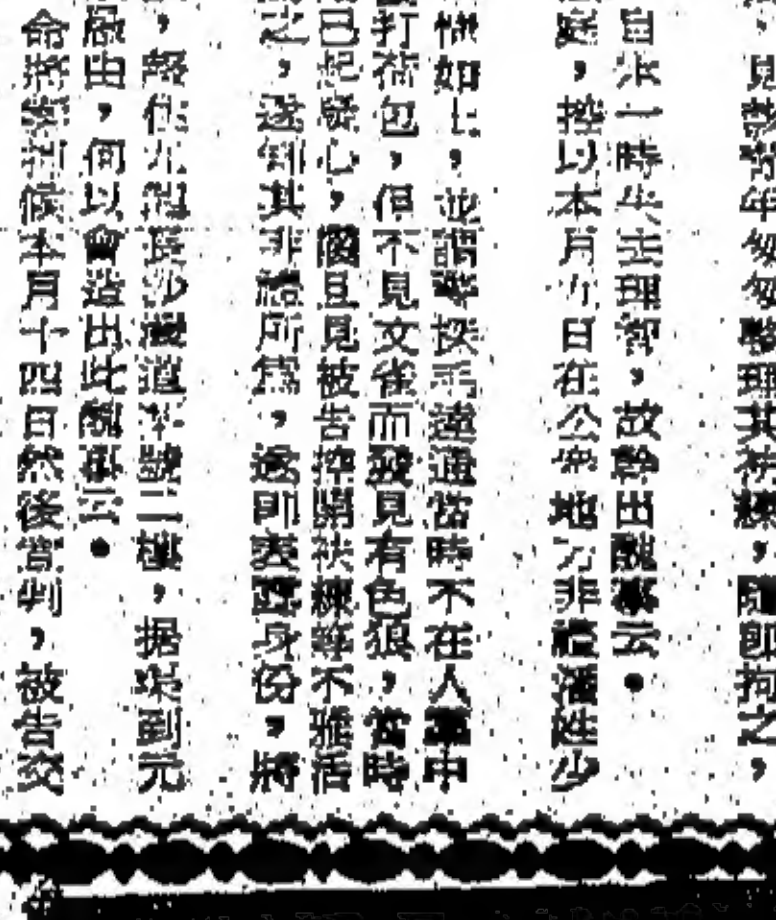 ，見該青年匆匆整理其衭褲，隨即拘之，
自承一時失去理智，故幹出醜事云●
庭，控以本月九日在公眾地方非禮潘姓少
情如上，並謂警探 遠通當時不在人叢中
打荷包，但不見文雀而發見有色狼，當時
已起疑心，園且見被告控開 褲 不雅活
之，迨 其非禮所為，遂即表露身份，將
，報住九龍長沙灣道 號二樓，据 到元
愚由，何以會造出此醜 云●
命將案押候本月十四日然後宣判，被告交